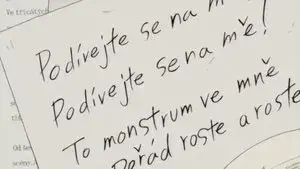 Ve třicátých
Podívejte se na mě!
Podívejte se na mě!
To monstrum ve mně
Pořád roste a roste